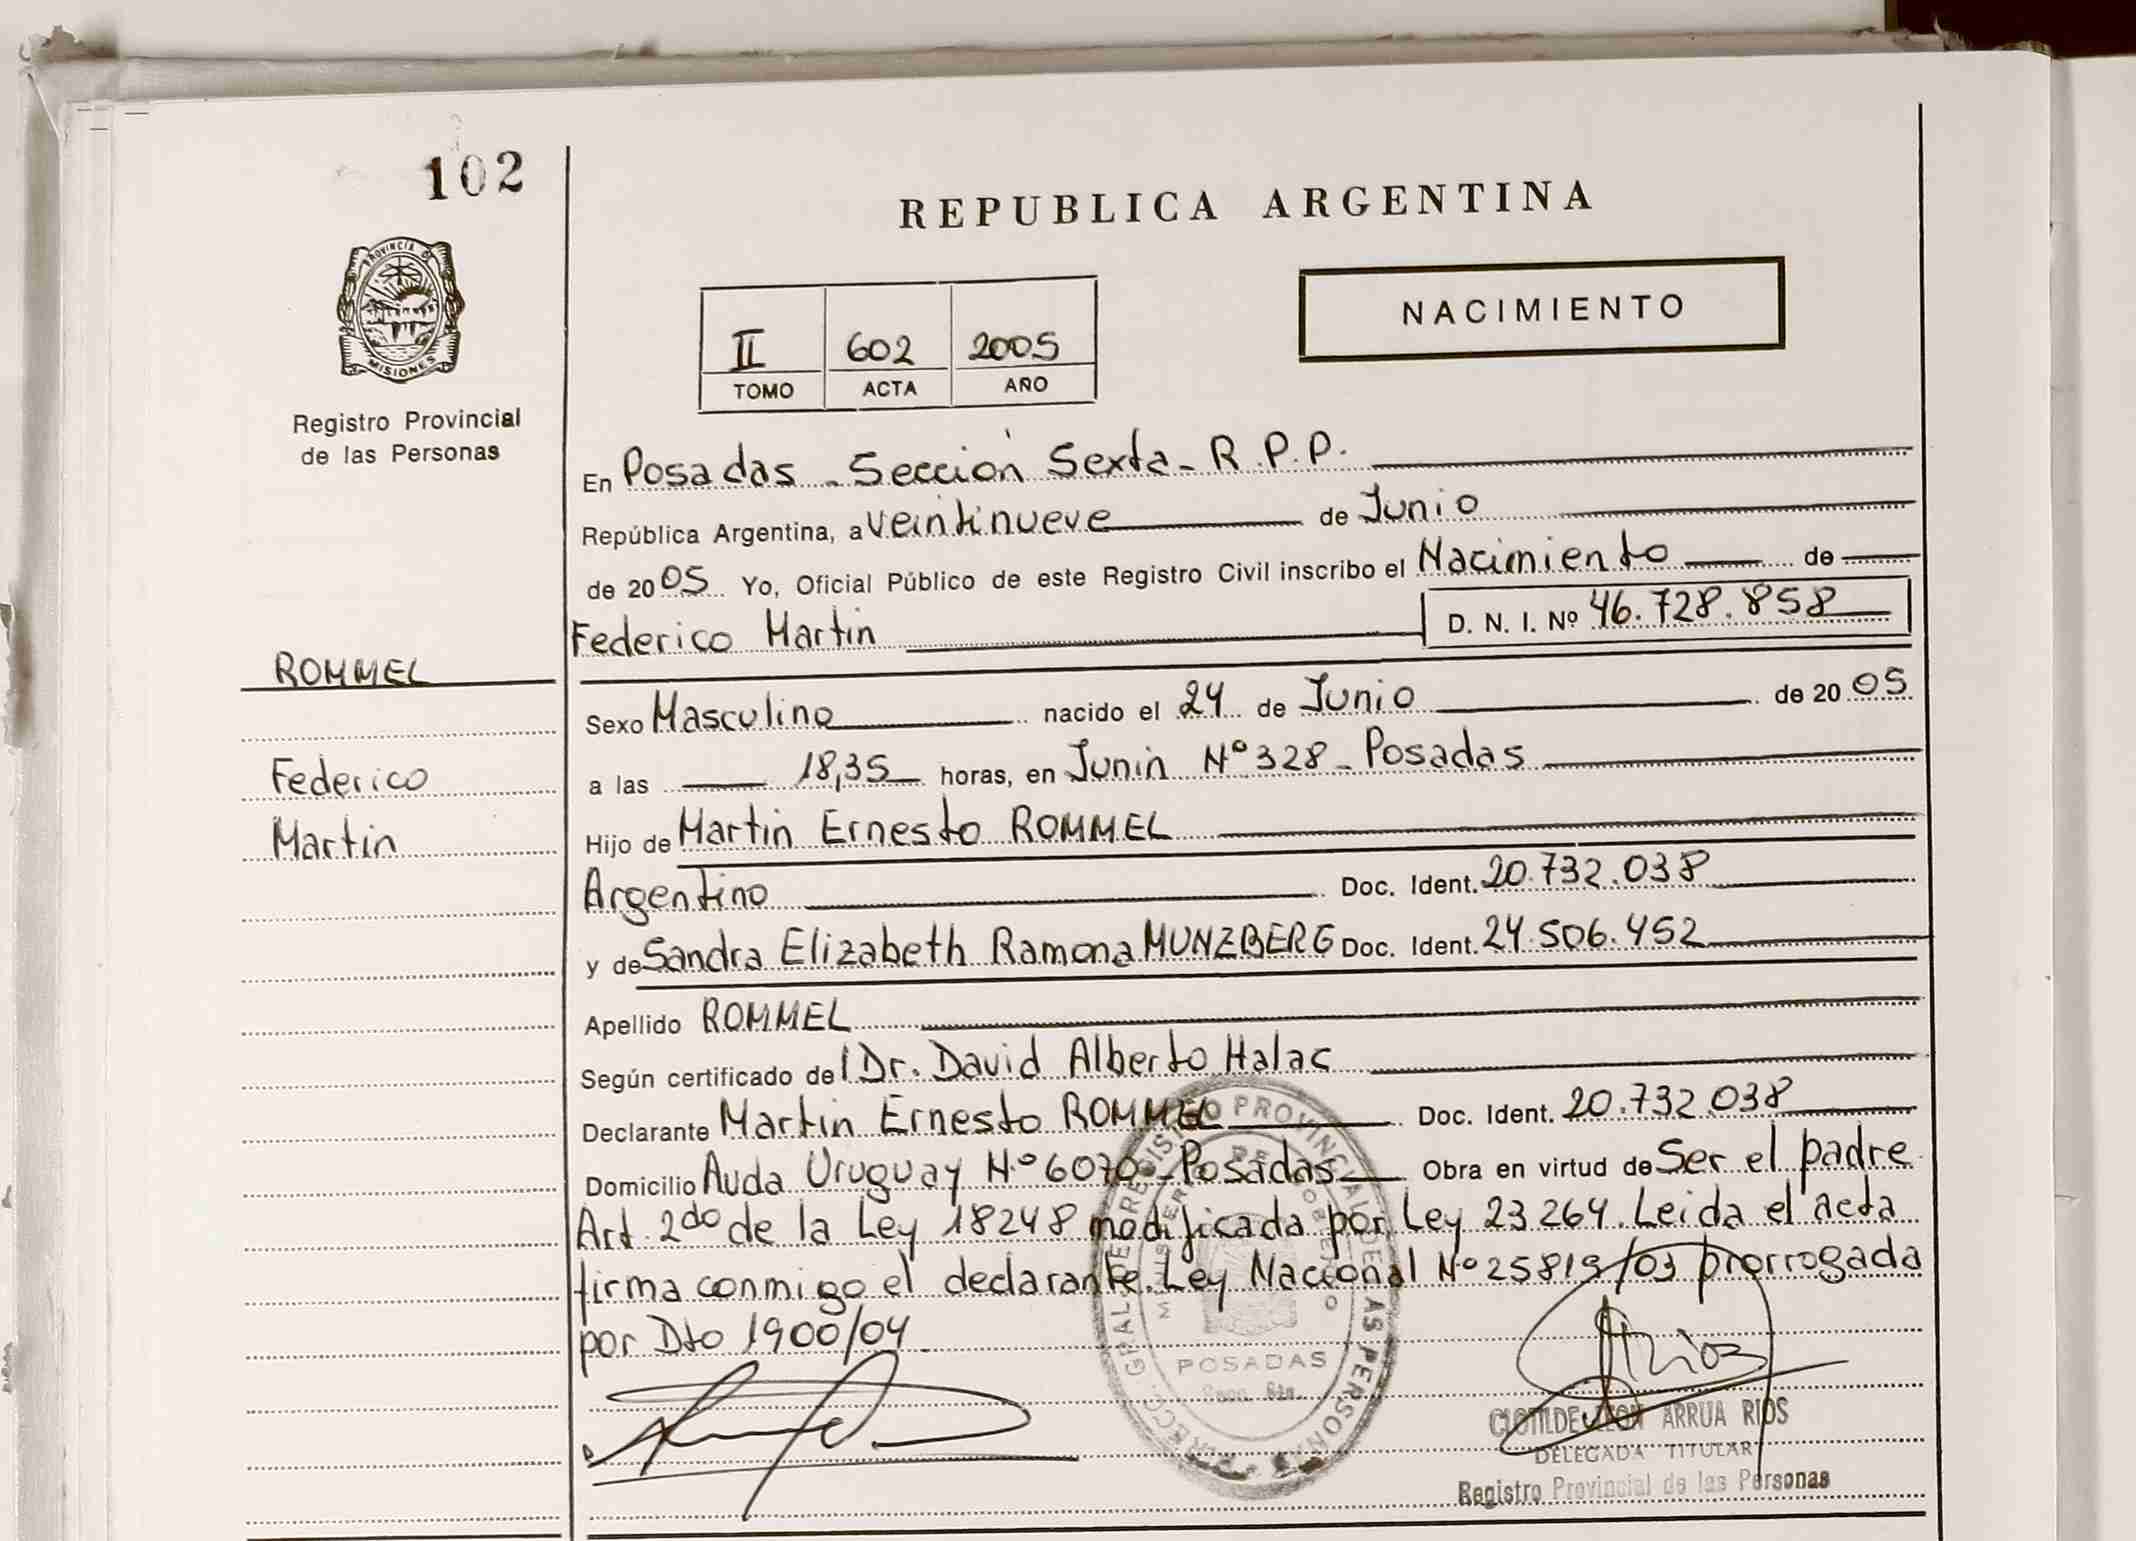 102
REPUBLICA ARGENTINA
PROVINCIA DE
MISIONES
Registro Provincial
de las Personas
II 602 2005
TOMO ACTA AÑO
NACIMIENTO
En Posadas - Sección Sexta - R.P.P.
República Argentina, a veintinueve de Junio
de 2005 Yo, Oficial Público de este Registro Civil inscribo el Nacimiento de
Federico Martin D. N. I. Nº 46.728.858
ROMMEL
Federico
Martin
Sexo Masculino nacido el 24 de Junio de 2005
a las 18,35 horas, en Junin Nº 328 - Posadas
Hijo de Martin Ernesto ROMMEL
Argentino Doc. Ident. 20.732.038
y de Sandra Elizabeth Ramona MUNZBERG Doc. Ident. 24.506.452
Apellido ROMMEL
Según certificado del Dr. David Alberto Halac
Declarante Martin Ernesto ROMMEL Doc. Ident. 20.732.038
Domicilio Avda Uruguay Nº 6070 - Posadas Obra en virtud de Ser el padre
Art. 2do de la Ley 18248 modificada por Ley 23264. Leida el acta
firma conmigo el declarante. Ley Nacional Nº 25819/03 prorrogada
por Dto 1900/04
POSADAS
CLOTILDE ARRUA RIOS
DELEGADA TITULAR
Registro Provincial de las Personas